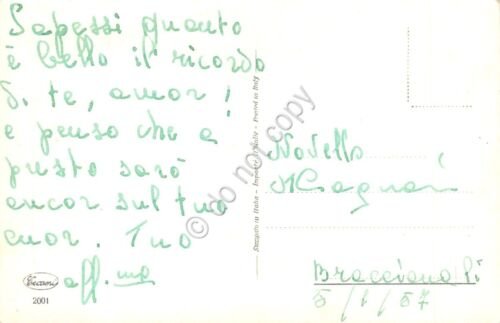 Sapessi quanto
è bello il ricordo
di te, amor!
e penso che a
presto sarò
ancor sul tuo
cuor. Tuo
aff.mo
Cecami
2001
Stampato in Italia - Imprimé en Italie - Printed in Italy
© do not copy
Novella
Bracciano
5/1/57